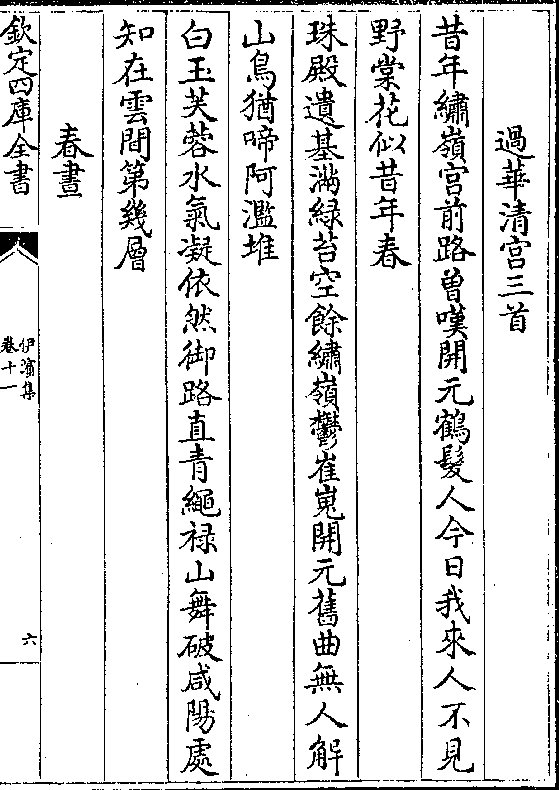 過華清宫三首
昔年繡嶺宫前路曽嘆開元鶴髮人今日我來人不見
野棠花似昔年春
珠殿遺基滿緑苔空餘繡嶺鬱崔嵬開元舊曲無人解
山鳥猶啼阿濫堆
白玉芙蓉水氣凝依然御路直青繩禄山舞破咸陽處
知在雲間第幾層
春晝
欽定四庫全書
伊濱集
卷十一
六